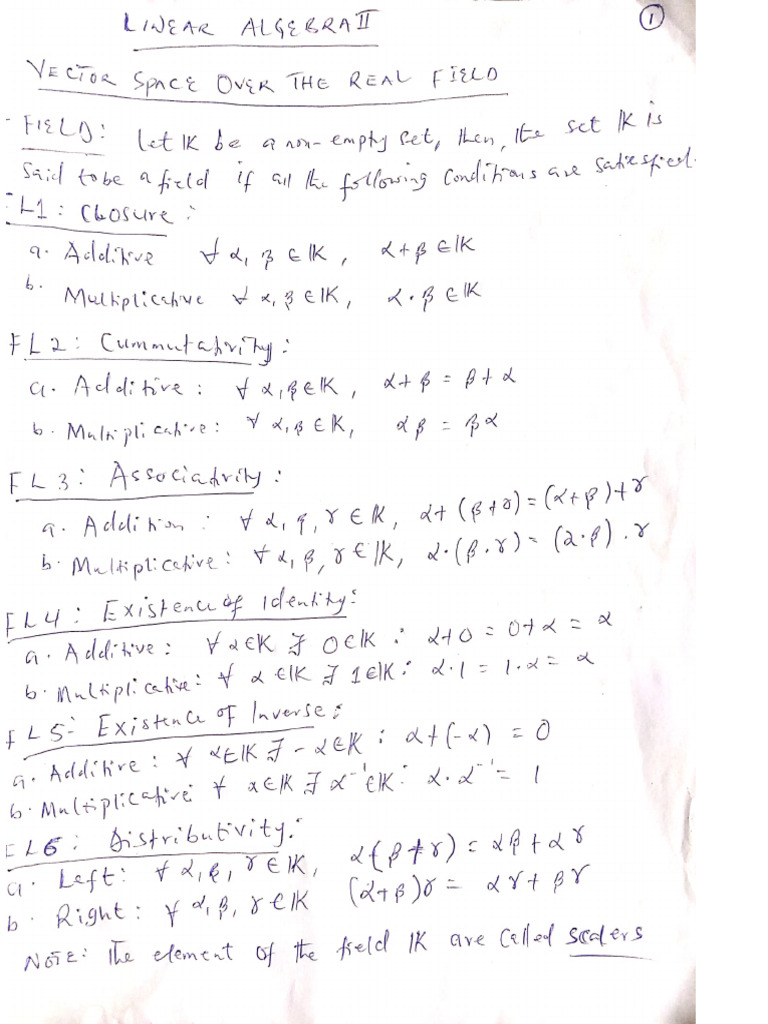 LINEAR ALGEBRA II
1
VECTOR SPACE OVER THE REAL FIELD
- FIELD: let IK be a non-empty set, then, the set IK is
said to be a field if all the following conditions are satisfied.
L1: Closure:
a. Additive ∀ α, β ∈ IK, α+β ∈ IK
b. Multiplicative ∀ α, β ∈ IK, α·β ∈ IK
FL2: Cummutativity:
a. Additive: ∀ α, β ∈ IK, α+β = β+α
b. Multiplicative: ∀ α, β ∈ IK, αβ = βα
FL3: Associativity:
a. Addition: ∀ α, β, γ ∈ IK, α+(β+γ) = (α+β)+γ
b. Multiplicative: ∀ α, β, γ ∈ IK, α·(β·γ) = (α·β)·γ
FL4: Existence of Identity:
a. Additive: ∀ α ∈ IK ∃ 0 ∈ IK : α+0 = 0+α = α
b. Multiplicative: ∀ α ∈ IK ∃ 1 ∈ IK : α·1 = 1·α = α
FL5: Existence of Inverse:
a. Additive: ∀ α ∈ IK ∃ -α ∈ IK : α+(-α) = 0
b. Multiplicative ∀ α ∈ IK ∃ α⁻¹ ∈ IK : α·α⁻¹ = 1
FL6: Distributivity:
a. Left: ∀ α, β, γ ∈ IK, α(β+γ) = αβ+αγ
b. Right: ∀ α, β, γ ∈ IK (α+β)γ = αγ+βγ
NOTE: The element of the field IK are called scalers